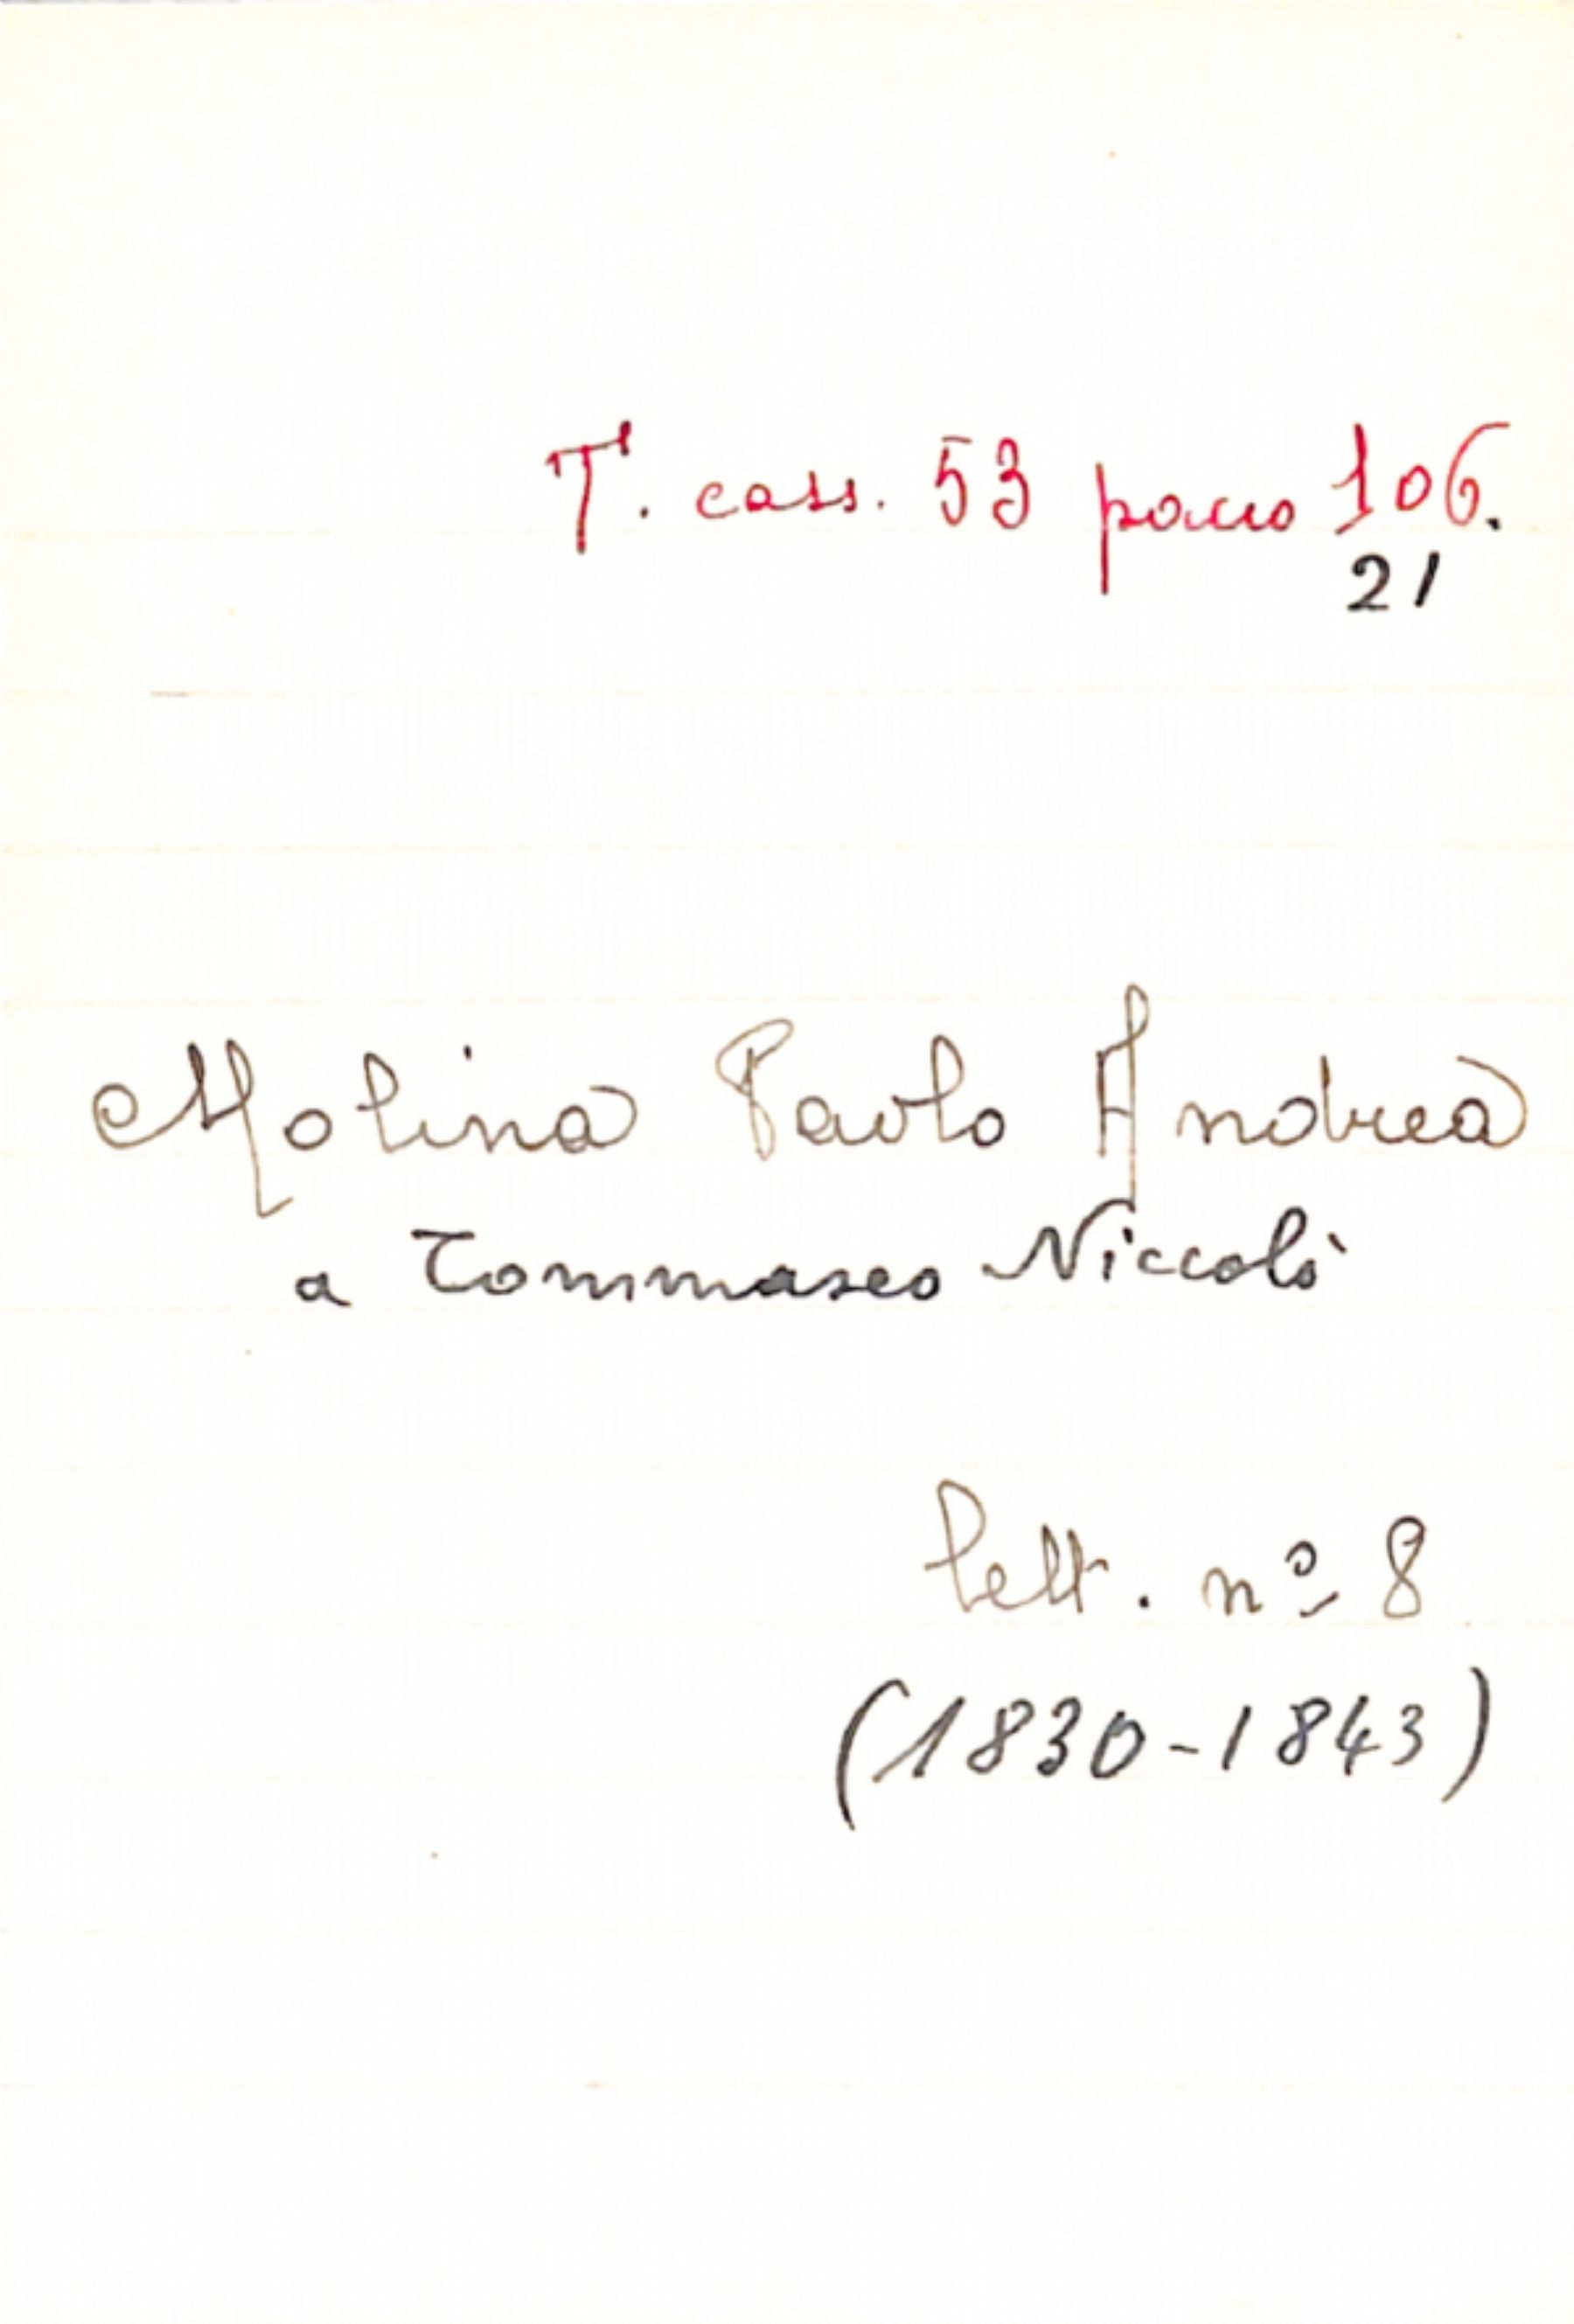 T. cass. 53 pacco 106.
21
Molina Paolo Andrea
a Tommaseo Niccolò
lett. nº 8
(1830-1843)